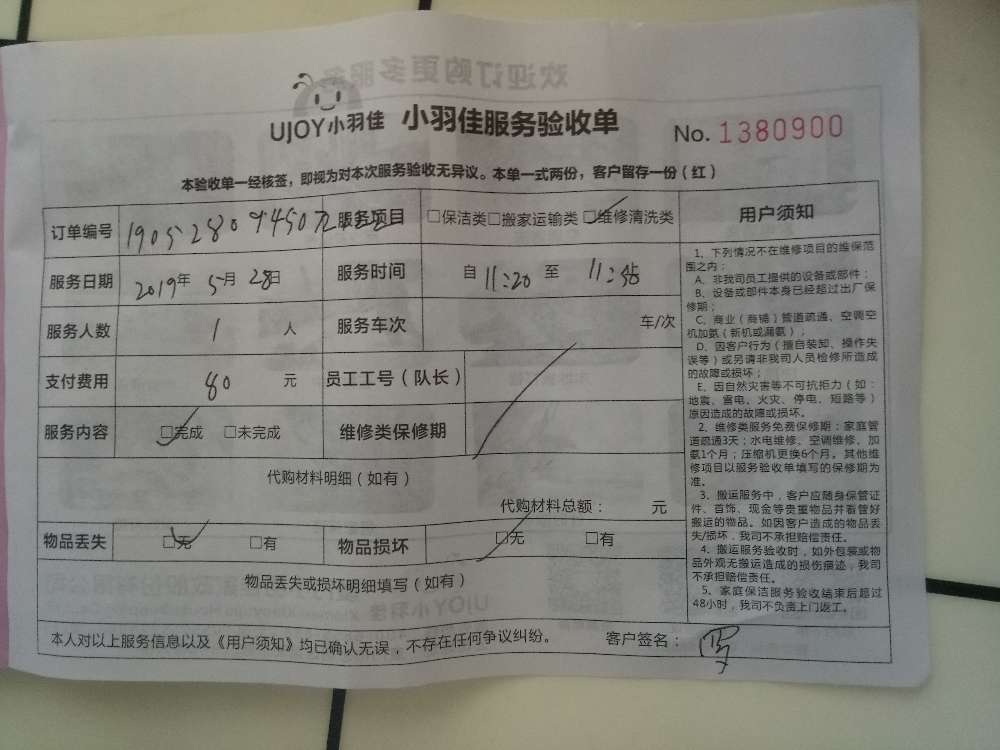 UJOY小羽佳 小羽佳服务验收单 No. 1380900
本验收单一经核签，即视为对本次服务验收无异议。本单一式两份，客户留存一份（红）
订单编号 服务项目 □保洁类□搬家运输类□维修清洗类
服务日期 2019年 5月 28日 服务时间 自 11:20 至
服务人数 1 人 服务车次 车/次
支付费用 80 元 员工工号（队长）
服务内容 □完成 □未完成 维修类保修期
代购材料明细（如有）
代购材料总额： 元
物品丢失 □无 □有 物品损坏 □无 □有
物品丢失或损坏明细填写（如有）
本人对以上服务信息以及《用户须知》均已确认无误，不存在任何争议纠纷。 客户签名：
用户须知
1、下列情况不在维修项目的维保范
围之内：
A、非我司员工提供的设备或部件；
B、设备或部件本身已经超过出厂保
修期；
C、商业（商铺）管道疏通、空调空
机加氨（新机或漏氨）；
D、因客户行为（擅自装卸、操作失
误等）或另请非我司人员检修所造成
的故障或损坏；
E、因自然灾害等不可抗拒力（如：
地震、雷电、火灾、停电、短路等）
原因造成的故障或损坏。
2、维修类服务免费保修期：家庭管
道疏通3天；水电维修、空调维修、加
氨1个月；压缩机更换6个月。其他维
修项目以服务验收单填写的保修期为
准。
3、搬运服务中，客户应随身保管证
件、首饰、现金等贵重物品并看管好
搬运的物品。如因客户造成的物品丢
失/损坏，我司不承担赔偿责任。
4、搬运服务验收时，如外包装或物
品外观无搬运造成的损伤痕迹，我司
不承担赔偿责任。
5、家庭保洁服务验收结束后超过
48小时，我司不负责上门返工。